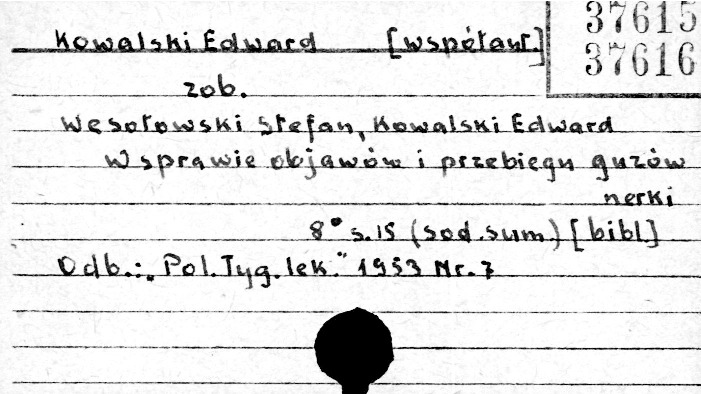 37615
37616
Kowalski Edward [współaut.]
zob.
Wesołowski Stefan, Kowalski Edward
W sprawie objawów i przebiegu guzów
nerki
8° s.15 (sod.sum.) [bibl.]
Odb.: „Pol.Tyg.lek.” 1953 Nr.7